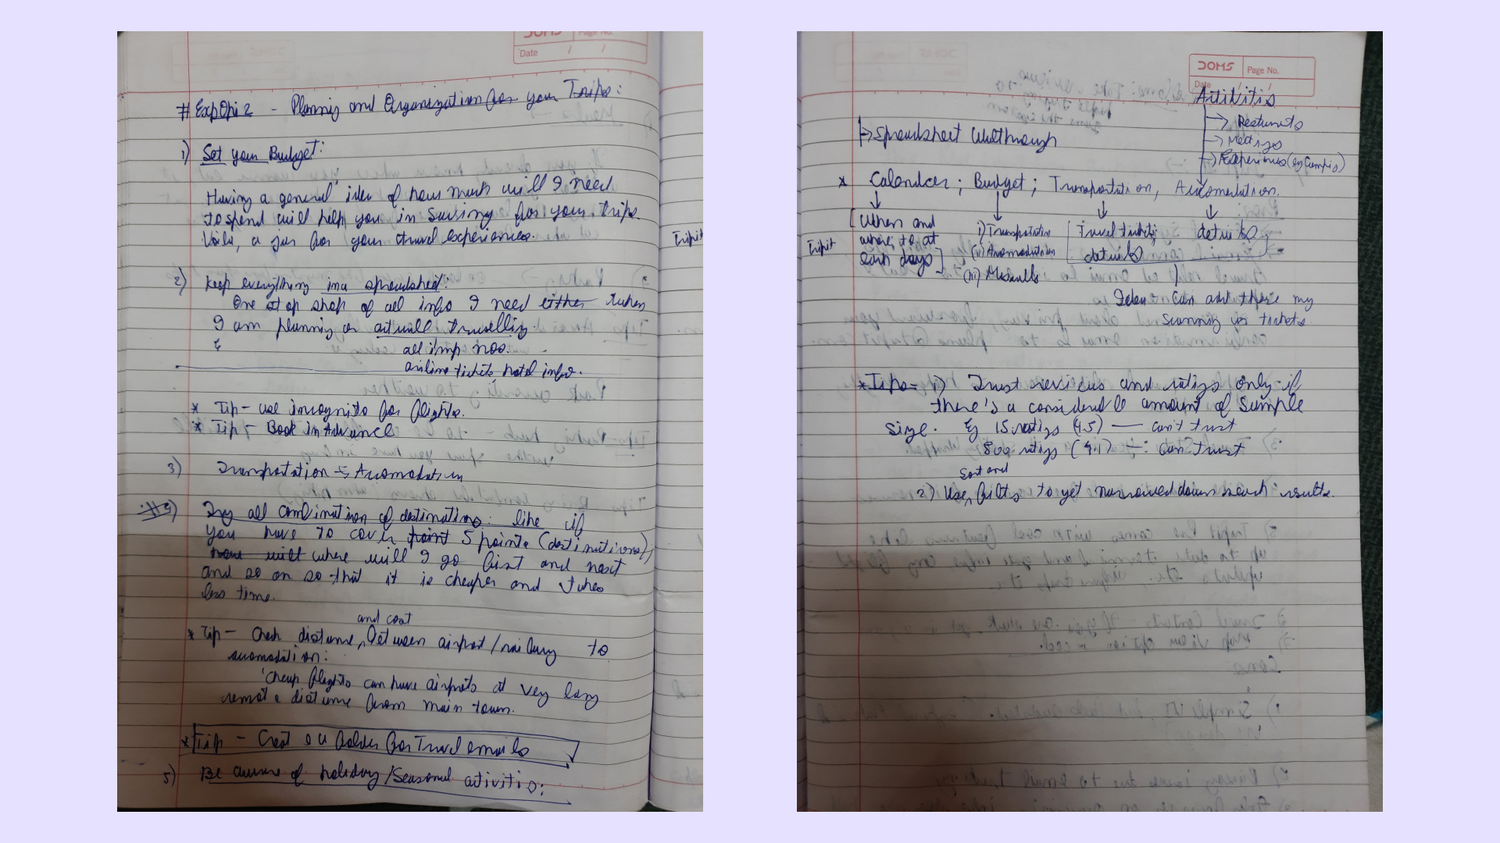 DOMS Page No.
Date / /
# ExpOpi 2 - Planning and Organization for your Trips:
1) Set your Budget:
Having a general idea of how much will I need
to spend will help you in saving for your trips
a jar for your travel experiences.
2) Keep everything in a spreadsheet:
One stop shop of all info I need either when
I am planning or actuall travelling.
& all imp nos.
airline tickets, hotel info.
* Tip - use incognito for flights.
* Tip - Book in Advance
3) Transportation & Accomodation
Try all combination of destinations: like if
you have to cover point 5 points (destinations),
will where will I go first and next
and so on so that it is cheaper and takes
less time.
and cost
* Tip - Check distance, between airport/railway to
accomodation:
Cheap flights can have airports at very long
remote distance from main town.
* Tip - Create a folder for Travel emails
5) Be aware of holiday/Seasonal activities:
Tripit
DOMS Page No.
Date
Activities
→ Resturants
→ Meetings
→ Experiences (eg Camping)
→ Spreadsheet Walkthrough
* Calendar; Budget; Transportation, Accomodation.
Tripit
[When and
where to at
each days]
i) Transportation
(ii) Accomodation
(iii) Meals
Travel tickets
details
details
can add there my
summary for tickets
* Tips - 1) Trust reviews and ratings only if
there's a considerable amount of Sample
Size. Eg 15 ratings (4.5) — can't trust
800 ratings (4.1) — : Can trust
Sort and
2) Use, filters to get narrowed down search results.